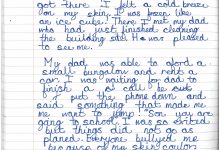 got there I felt a cold breeze
from my skin. It was been like
an ice cube. There I met my dad
who had just finished cleaning
the building site. He was pleased
to see me.
My dad was able to afford a
small bungalow and rent a
car. I was waiting for dad to
finish a call he
put the phone down and
said something that made me
want to jump "Son you are
going to school. I was so excited
but things did not go as
planed. Everyone bullied me
because of my skin color